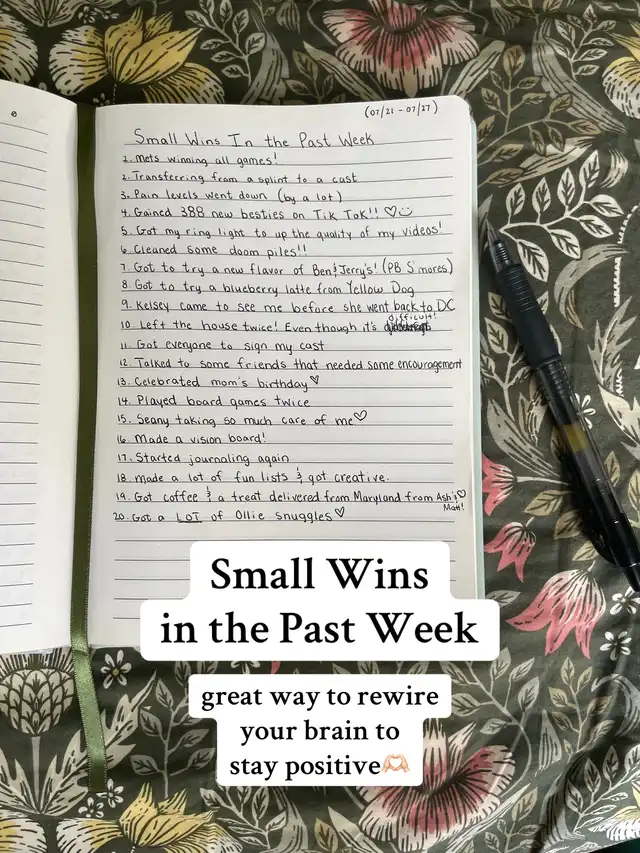 (07/21 - 07/27)
Small Wins In the Past Week
1. Mets winning all games!
2. Transferring from a splint to a cast
3. Pain levels went down (by a lot)
4. Gained 388 new besties on Tik Tok!! ♡☺
5. Got my ring light to up the quality of my videos!
6. Cleaned some doom piles!!
7. Got to try a new flavor of Ben & Jerry's! (PB S'mores)
8. Got to try a blueberry latte from Yellow Dog
9. Kelsey came to see me before she went back to DC
10. Left the house twice! Even though it's difficult!
11. Got everyone to sign my cast
12. Talked to some friends that needed some encouragement
13. Celebrated mom's birthday ♡
14. Played board games twice
15. Seany taking so much care of me ♡
16. Made a vision board!
17. Started journaling again
18. Made a lot of fun lists & got creative.
19. Got coffee & a treat delivered from Maryland from Ash & ♡
Matt!
20. Got a LOT of Ollie snuggles ♡
Small Wins
in the Past Week
great way to rewire
your brain to
stay positive🫶🏻